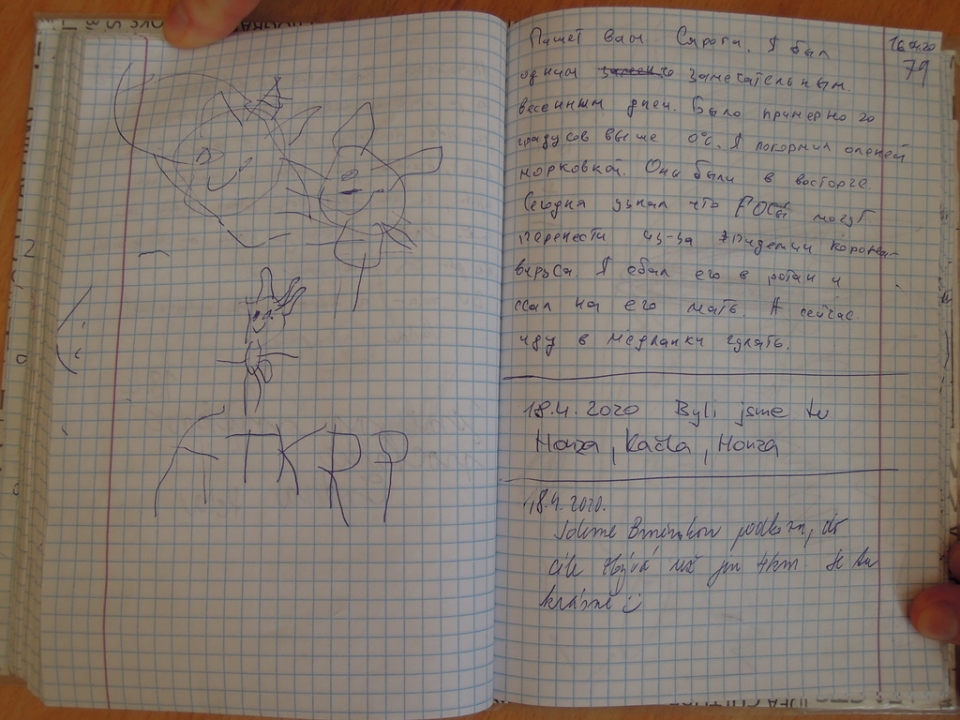 ATKRP
16.4.20
79
Пишет вам Сярога. Я был
одним замечательным.
весенним днем. Было примерно 20
градусов выше 0°C. Я покормил оленей
морковкой. Они были в восторге
Сегодня узнал что могут
перенести из-за эпидемии корона-
вируса. Я ебал его в ротан и
ссал на его мать. А сейчас
иду в медланки гулять.
18.4. 2020 Byli jsme tu
Honza, Kačka, Honza
18.4. 2020.
Jdeme Brněnskou podkovu, do
cíle zbývá už jen 4km Je tu
krásně :)